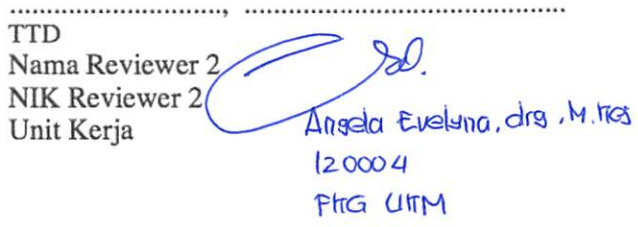 ............................, ..........................................
TTD
Nama Reviewer 2
NIK Reviewer 2
Unit Kerja
Angela Evelyna, drg, M.Kes
120004
FKG UKM